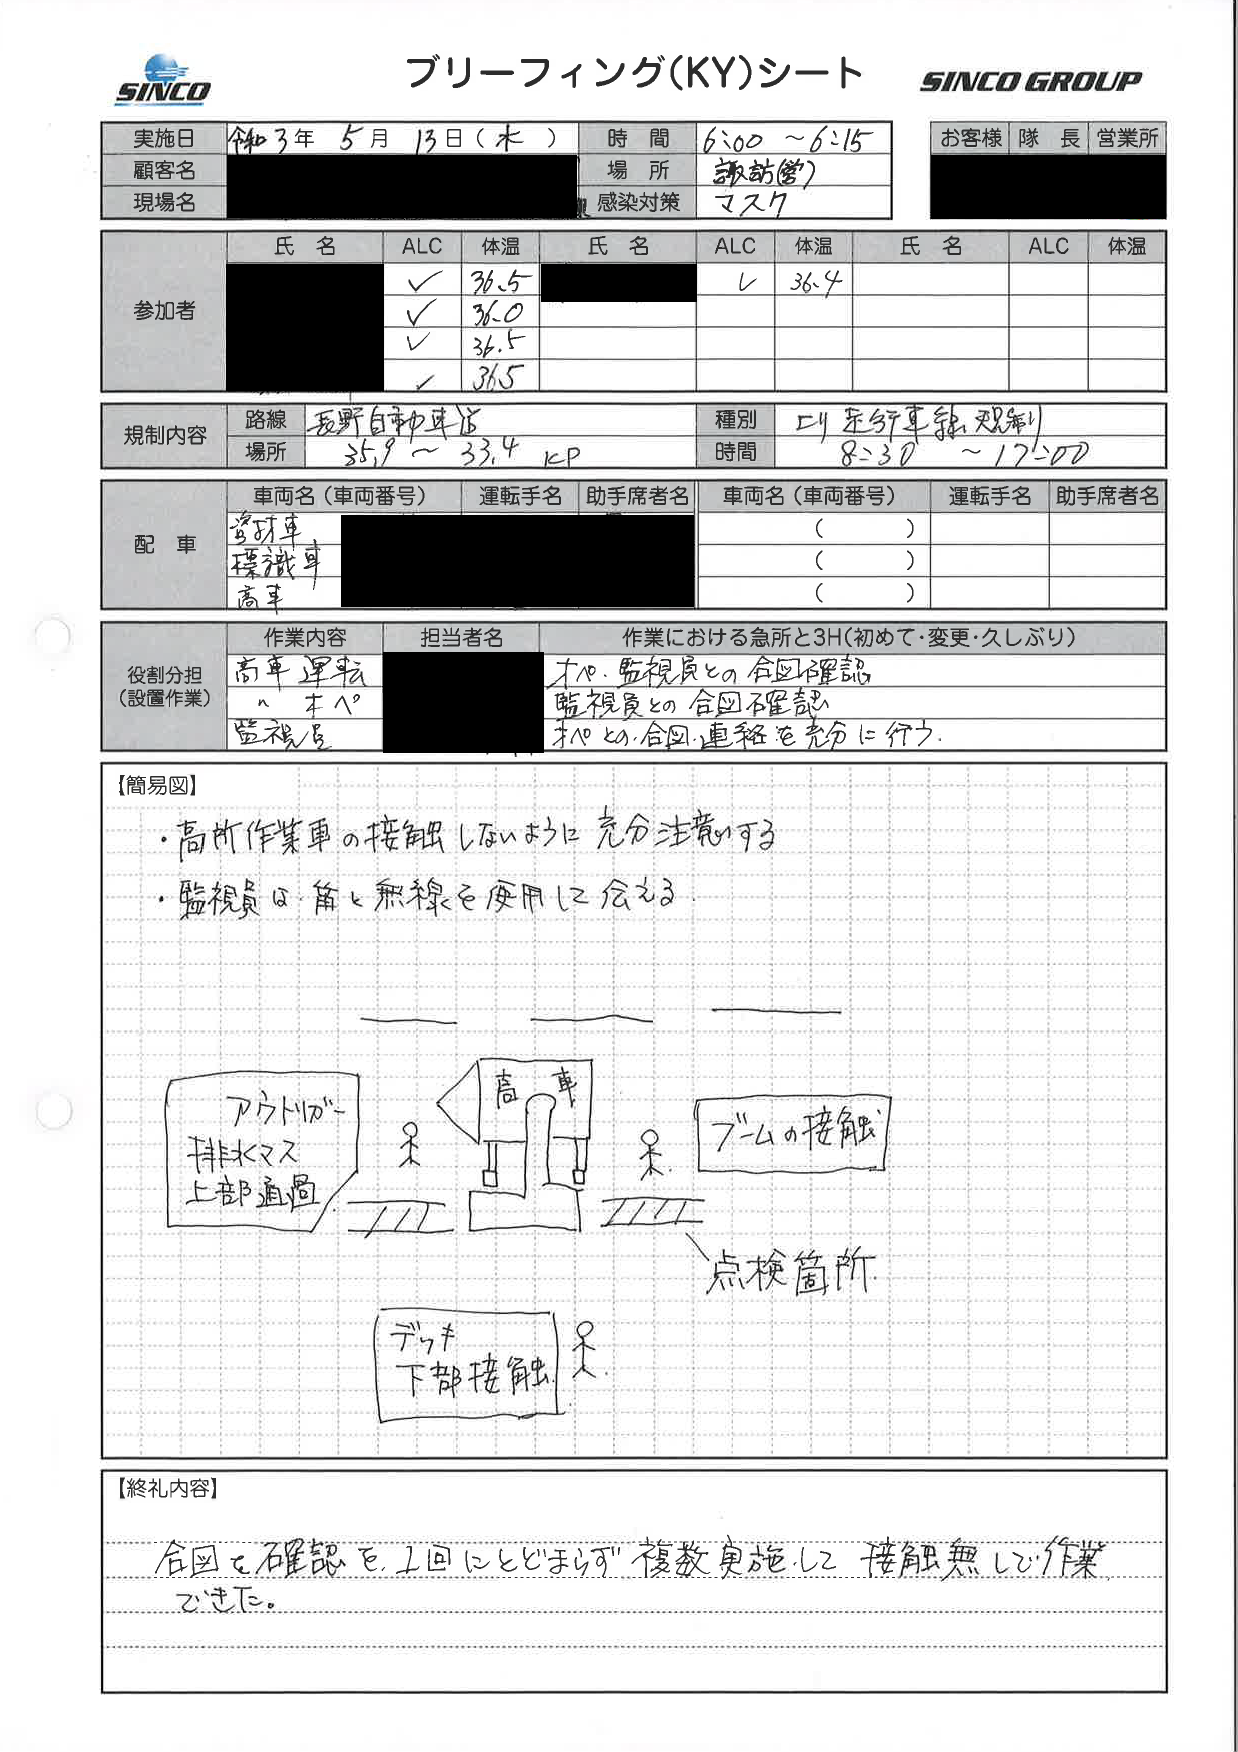 SINCO
ブリーフィング(KY)シート
SINCO GROUP
実施日 令和3年 5月 13日(木) 時間 6:00 ～6:15
お客様 隊長 営業所
顧客名 場所 諏訪(営)
現場名 感染対策 マスク
参加者 氏名 ALC 体温 氏名 ALC 体温 氏名 ALC 体温
✓ 36.5 ✓ 36.4
✓ 36.0
✓ 36.5
✓ 36.5
規制内容 路線 長野自動車道 種別 上り 走行車線規制
場所 35.9 ～ 33.4 KP 時間 8:30 ～17:00
配車 車両名(車両番号) 運転手名 助手席者名 車両名(車両番号) 運転手名 助手席者名
資材車 ( )
標識車 ( )
高車 ( )
役割分担(設置作業) 作業内容 担当者名 作業における急所と3H(初めて・変更・久しぶり)
高車 運転 オペ・監視員との合図確認
〃 オペ 監視員との合図確認
監視員 オペとの合図・連絡を充分に行う.
【簡易図】
・高所作業車の接触しないように充分注意する
・監視員は笛と無線を使用して伝える.
高車
アウトリガー
排水マス
上部通過
ブームの接触
点検箇所
デッキ
下部接触
【終礼内容】
合図を確認を1回にとどまらず複数実施して接触無しで作業
できた。